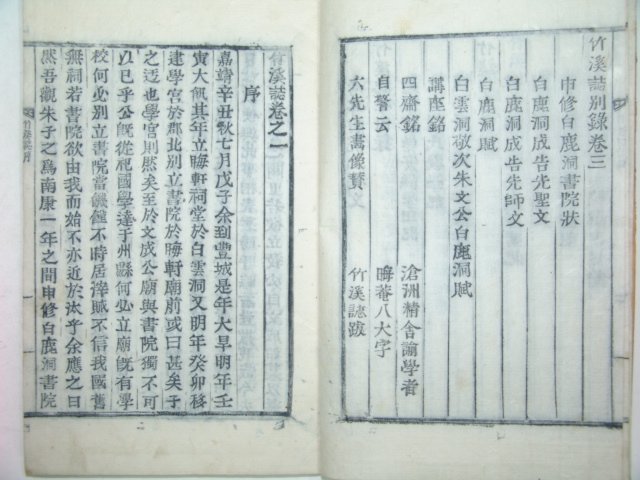 竹溪誌別錄卷三
申修白鹿洞書院狀
白鹿洞成告先聖文
白鹿洞成告先師文
白鹿洞賦
白雲洞敬次朱文公白鹿洞賦
講座銘
四齋銘 滄洲精舍諭學者
自警云 晦菴八大字
六先生畫像贊文 竹溪誌跋
竹溪誌卷之一
序
嘉靖辛丑秋七月戊子余到豐城是年大旱明年壬
寅大飢其年立晦軒祠堂於白雲洞又明年癸卯移
建學宮於郡北別立書院於晦軒廟前或曰甚矣子
之迂也學宮則然矣至於文成公廟與書院獨不可
以已乎公旣從祀國學達于州縣何必立廟旣有學
校何必別立書院當饑饉不時居滓賊不信我國舊
無祠若書院欲由我而始不亦近於汰乎余應之曰
然吾觀朱子之爲南康一年之間申修白鹿洞書院